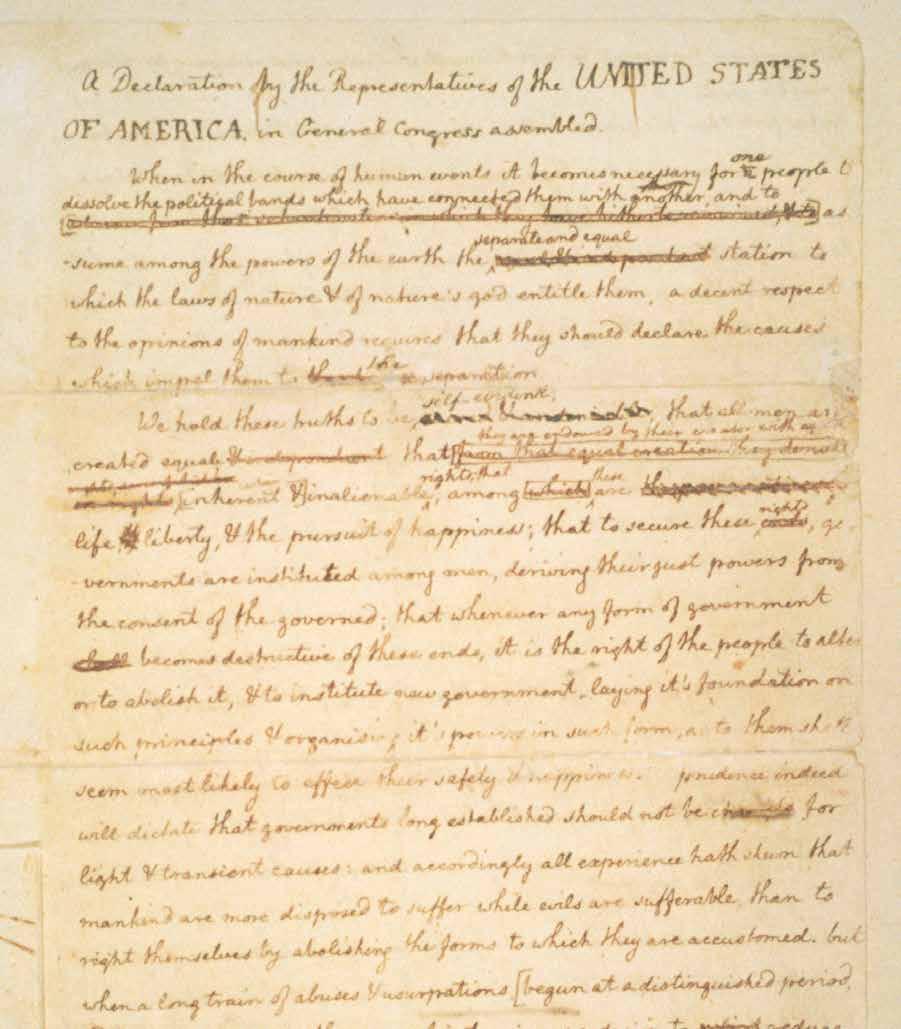 A Declaration by the Representatives of the UNITED STATES
OF AMERICA, in General Congress assembled.
When in the course of human events it becomes necessary for one people t
dissolve the political bands which have connected them with another, and to
as
separate and equal
-sume among the powers of the earth the station to
which the laws of nature & of nature's god entitle them, a decent respect
to the opinions of mankind requires that they should declare the causes
which impel them to the separation.
self-evident,
We hold these truths to be that all men are
they are endowed by their creator with
created equal that from that equal creation they
rights; that these
inherent & inalienable, among which are
life & liberty, & the pursuit of happiness; that to secure these rights, go-
-vernments are instituted among men, deriving their just powers from
the consent of the governed; that whenever any form of government
becomes destructive of these ends, it is the right of the people to alter
or to abolish it, & to institute new government, laying it's foundation on
such principles & organising it's powers in such form, as to them shall
seem most likely to effect their safety & happiness. prudence indeed
will dictate that governments long established should not be for
light & transient causes: and accordingly all experience hath shewn that
mankind are more disposed to suffer while evils are sufferable, than to
right themselves by abolishing the forms to which they are accustomed. but
when a long train of abuses & usurpations [begun at a distinguished period,